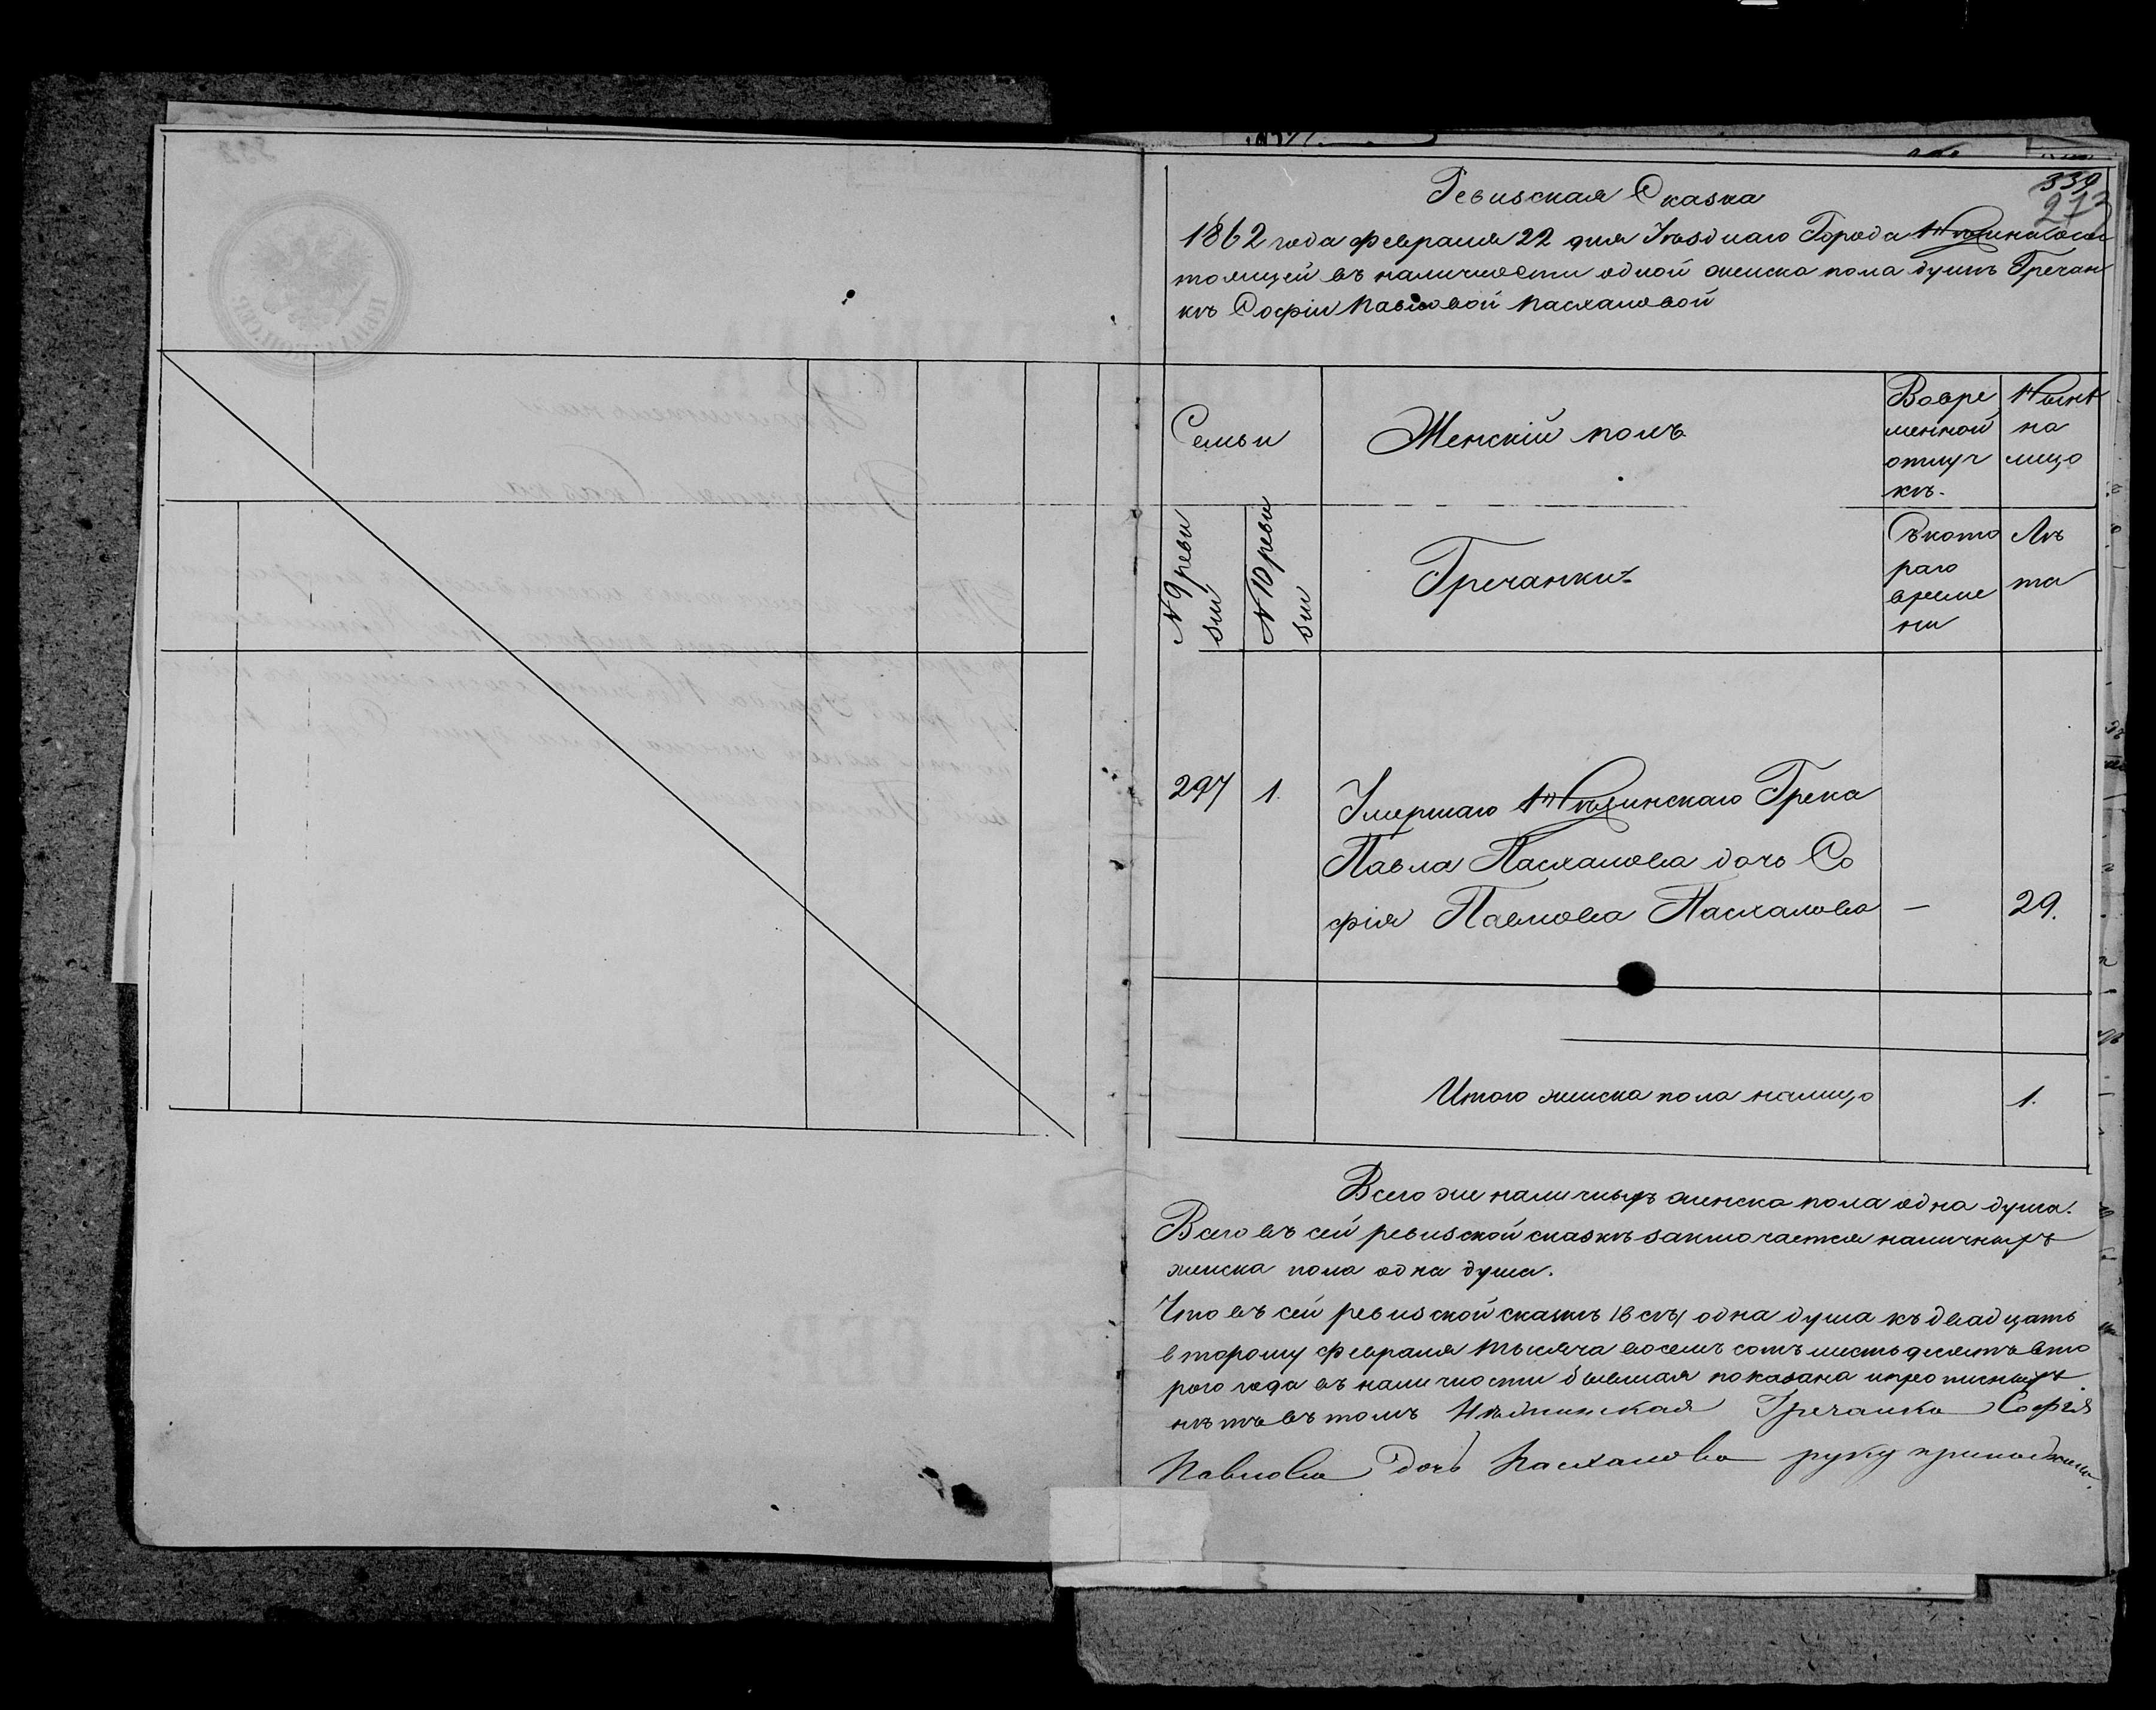 339
272
Ревизская Сказка
1862 года февраля 22 дня Уѣзднаго Города Нѣжина сос
тоящей въ наличности одной женска пола душѣ Гречан
кѣ Софіи Павловой Пасхаловой
Семьи
Женскій полъ
Вовре
менной
отлуч
кѣ.
Нынѣ
на
лицо
№ 9 реви
зіи
№ 10 реви
зіи
Гречанки
Съкото
раго
време
ни
Лѣ
та
297
1.
Умершаго Нѣжинскаго Грека
Павла Пасхалова дочь Со
фія Павлова Пасхалова — 29.
Итого женска пола налицо 1.
Всего же наличныхъ женска пола одна душа.
Всего въ сей ревизской сказкѣ заключается наличныхъ
женска пола одна душа.
Что въ сей ревизской сказкѣ одна душа къ двадцать
второму февраля тысяча восемь сотъ шестьдесятъ вто
рого года въ наличности бывшая показана и прописныхъ
нѣтъ въ томъ Нѣжинская Гречанка Софія
Павлова дочь Пасхалова руку приложила.